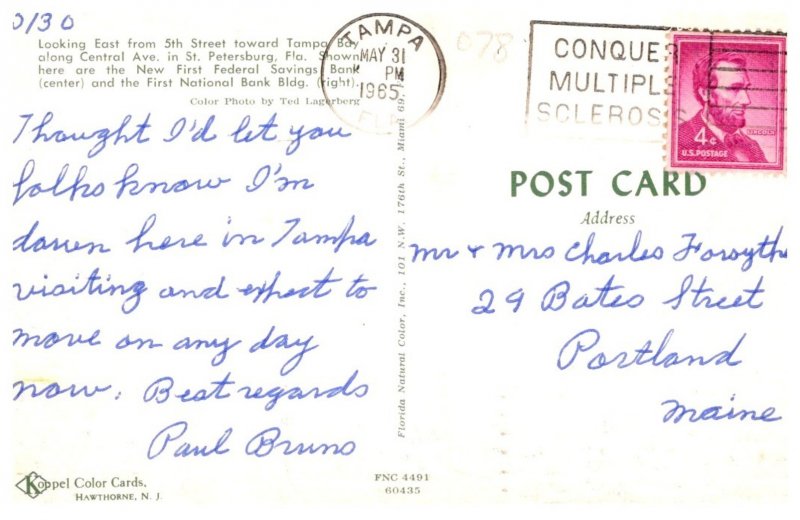 0130
Looking East from 5th Street toward Tampa Bay
along Central Ave. in St. Petersburg, Fla. Shown
here are the New First Federal Savings Bank
(center) and the First National Bank Bldg. (right).
Color Photo by Ted Lagerberg
Thought I'd let you
folks know I'm
down here in Tampa
visiting and expect to
move on any day
now. Best regards
Paul Bruno
Koppel Color Cards,
HAWTHORNE, N. J.
Florida Natural Color, Inc., 101 N.W. 176th St., Miami 69,
FNC 4491
60435
TAMPA
MAY 31
PM
1965
FLA
078
CONQUER
MULTIPLE
SCLEROSIS
4¢
LINCOLN
U.S. POSTAGE
POST CARD
Address
Mr & Mrs Charles Forsythe
29 Bates Street
Portland
Maine